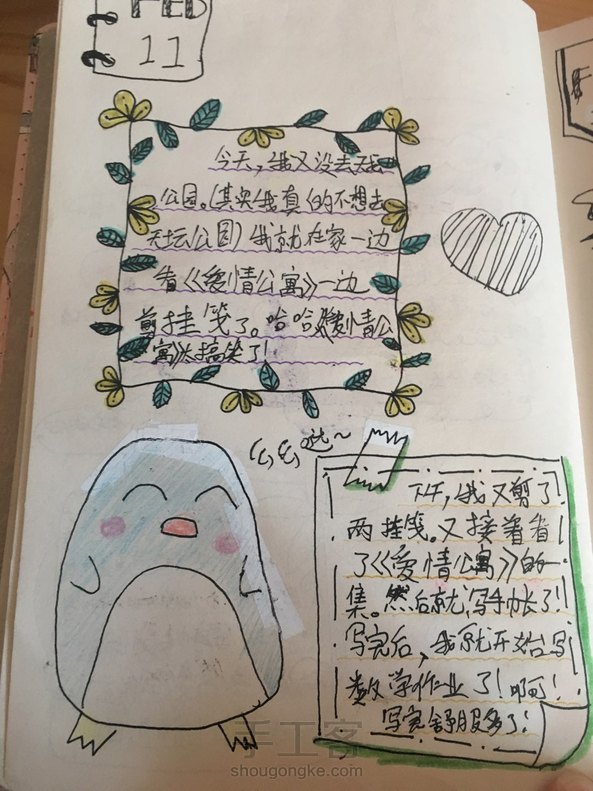 FEB
11
今天,我又没去天坛
公园。(其实我真的不想去
天坛公园)我就在家一边
看《爱情公寓》一边
剪挂笺了。哈哈《爱情公
寓》太搞笑了!
下午,我又剪了
两挂笺。又接着看
了《爱情公寓》的一
集。然后就写手帐了!
写完后,我就开始写
数学作业了!啊!
写完舒服多了!
手工客
shougongke.com